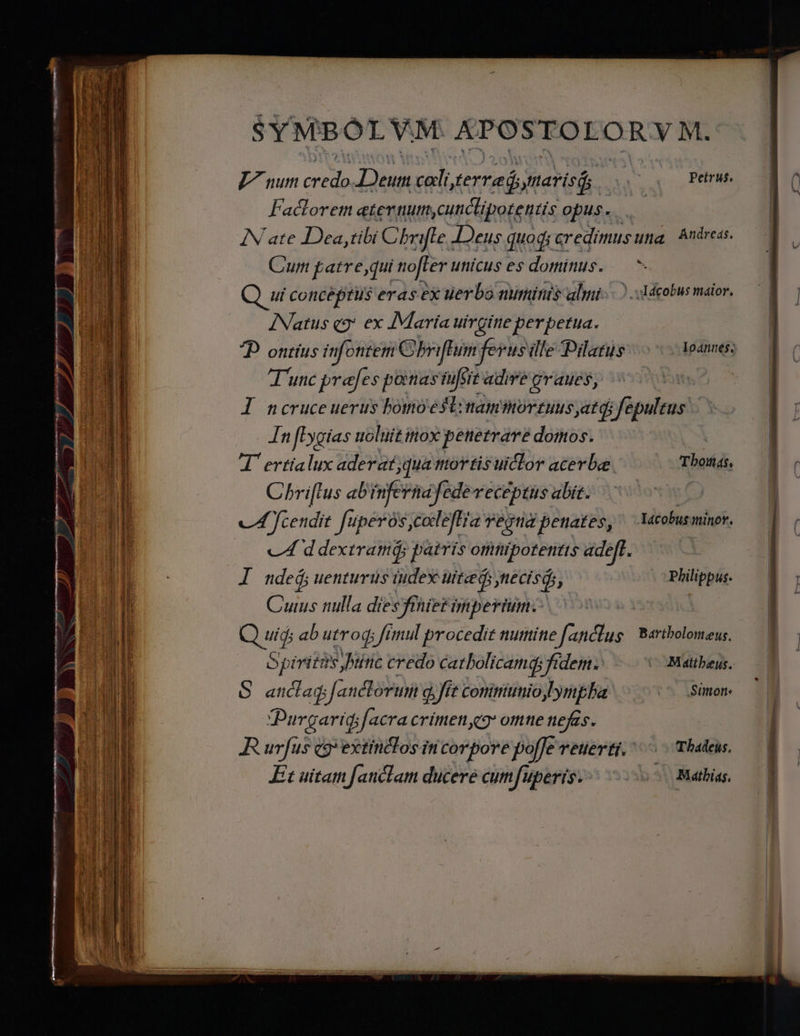 SYMBOLVM APOSTOLORVM.
Vnum credo Deum cœli,terræq́;,marisq́; Petrus.
Factorem æternum,cunctipotentis opus.
Nate Dea,tibi Christe Deus quoq; credimus una Andreas.
Cum patre,qui noster unicus es dominus.
Qui conceptus eras ex uerbo numinis almi Iacobus maior.
Natus & ex Maria uirgine perpetua.
Pontius insontem Christum ferus ille Pilatus Ioannes.
Tunc præses pœnas iussit adire graues,
In cruce uerus homo est: nam mortuus,atq; sepultus
In stygias uoluit mox penetrare domos.
Tertia lux aderat,qua mortis uictor acerbæ Thomas.
Christus ab inferna sede receptus abit.
Ascendit superos,cœlestia regna penates, Iacobus minor.
Ad dextramq́; patris omnipotentis adest.
Indeq́; uenturus iudex uitæq́;,necisq́;, Philippus.
Cuius nulla dies finiet imperium.
Quiq; ab utroq; simul procedit numine sanctus Bartholomæus.
Spiritus,hunc credo catholicamq; fidem. Mattheus.
Sanctaq; sanctorum q; sit communio,lympha Simon.
Purgariq; sacra crimen,& omne nefas.
Rursus & extinctos in corpore posse reuerti. Thadeus.
Et uitam sanctam ducere cum superis. Mathias.